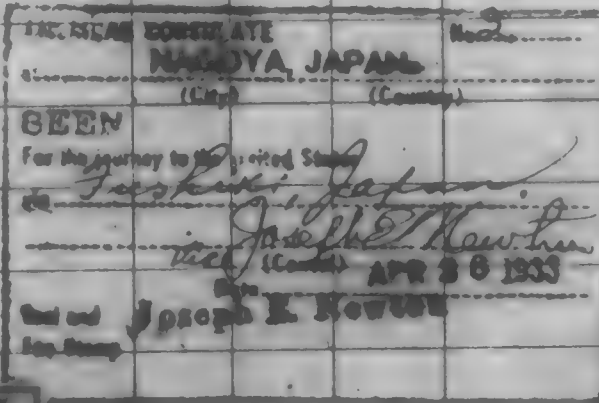 AMERICAN CONSULATE No.
NAGOYA, JAPAN.
(City) (Country)
SEEN
For the journey to the United States
via Japan
Joseph E. Newton
Vice (Consul)
Date APR 26 1933
Seal and Joseph E. Newton
Fee Stamp